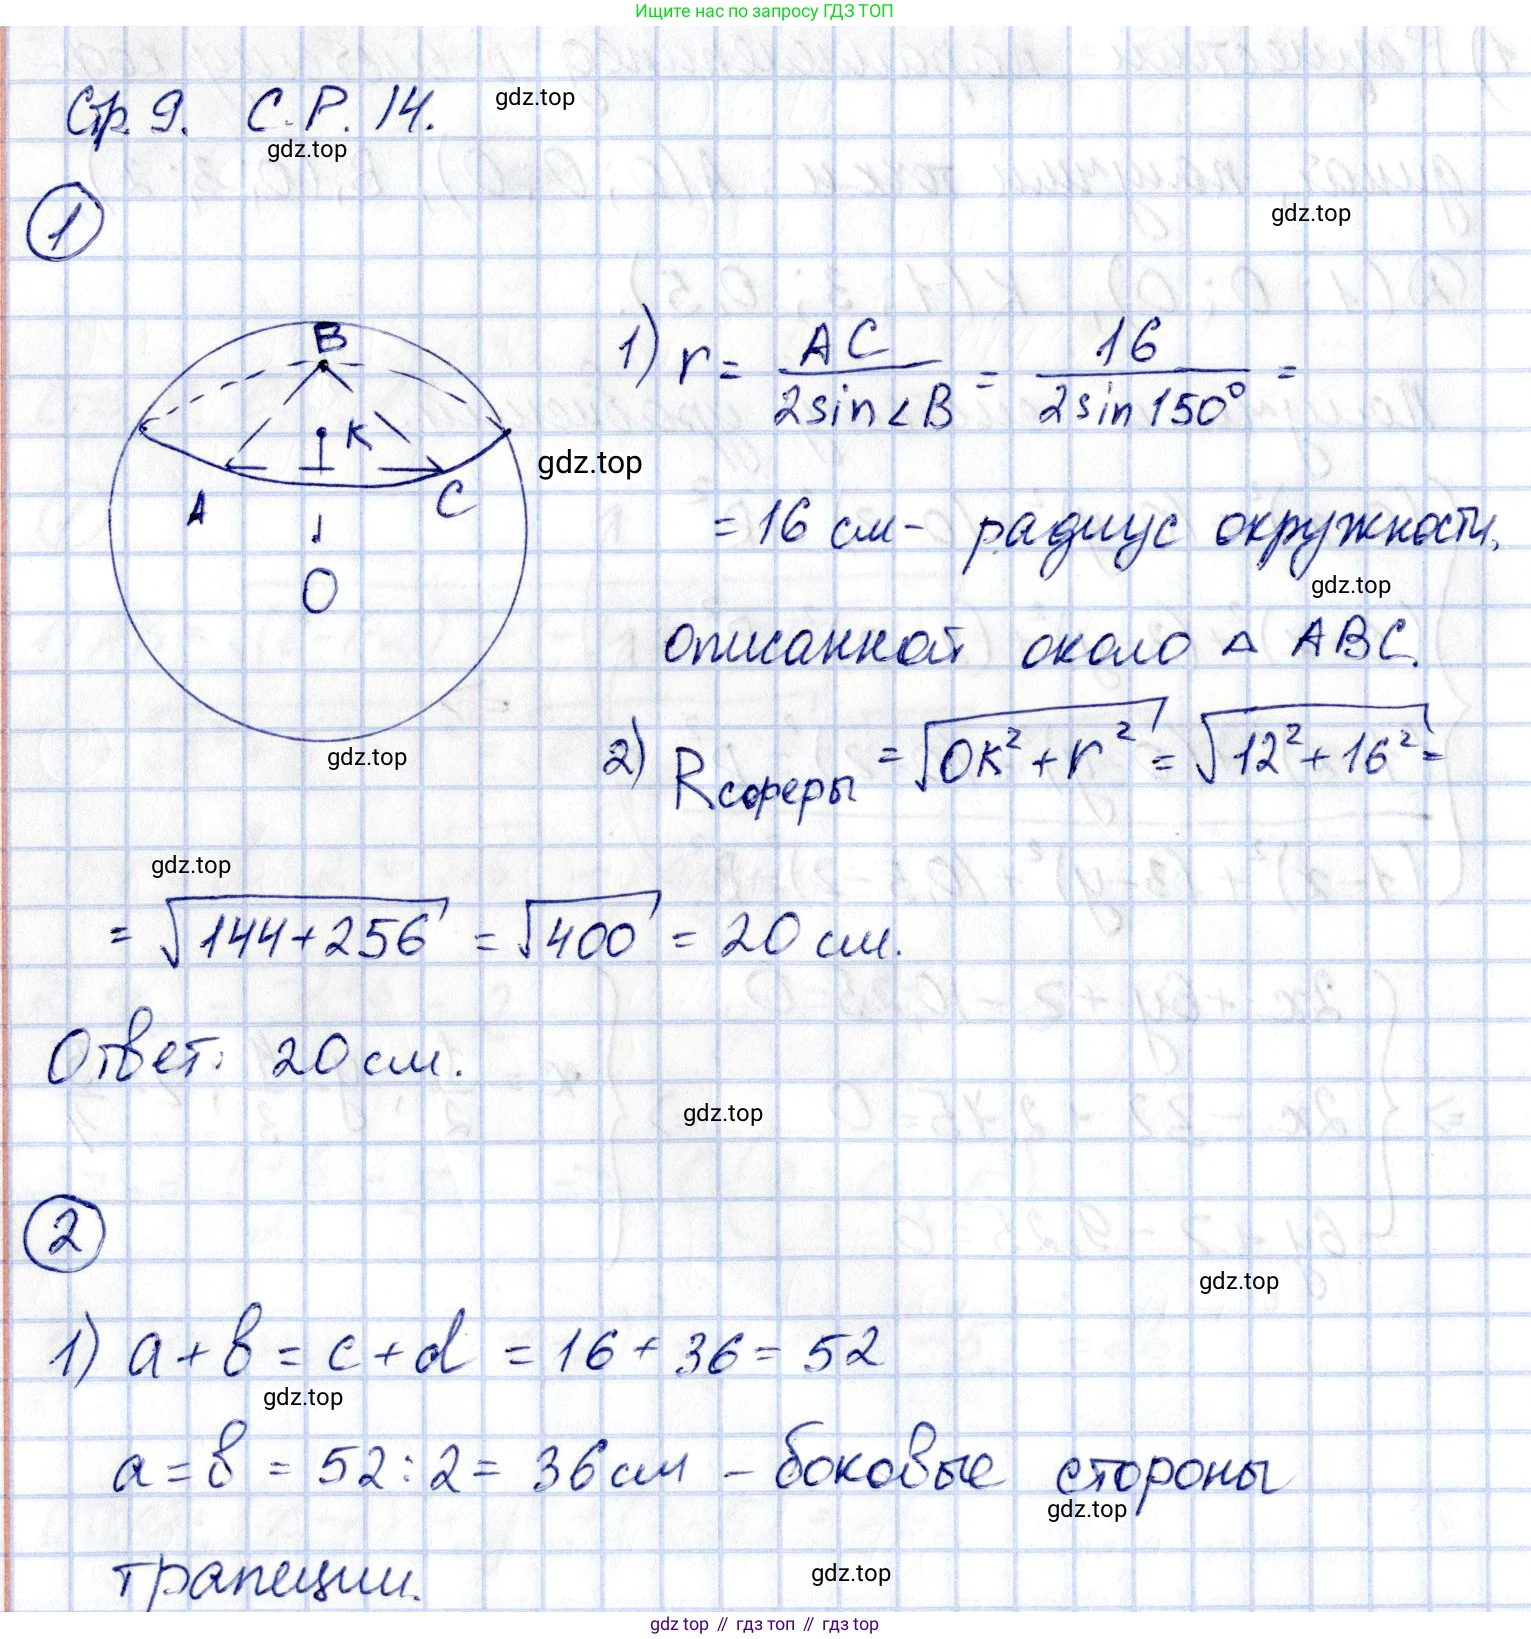 Ищите нас по запросу ГДЗ ТОП
Стр. 9. С.Р. 14.
gdz.top
gdz.top
1
gdz.top
B
K
A
C
O
1) r = AC / 2sin∠B = 16 / 2sin150° =
gdz.top
= 16 см - радиус окружности,
gdz.top
описанной около △ ABC.
gdz.top
2) Rсферы = √OK² + r² = √12² + 16² =
gdz.top
= √144+256 = √400 = 20 см.
Ответ: 20 см.
gdz.top
2
gdz.top
1) a + b = c + d = 16 + 36 = 52
gdz.top
a = b = 52 : 2 = 36 см - боковые стороны
gdz.top
трапеции.
gdz.top
gdz.top // гдз топ // гдз.top